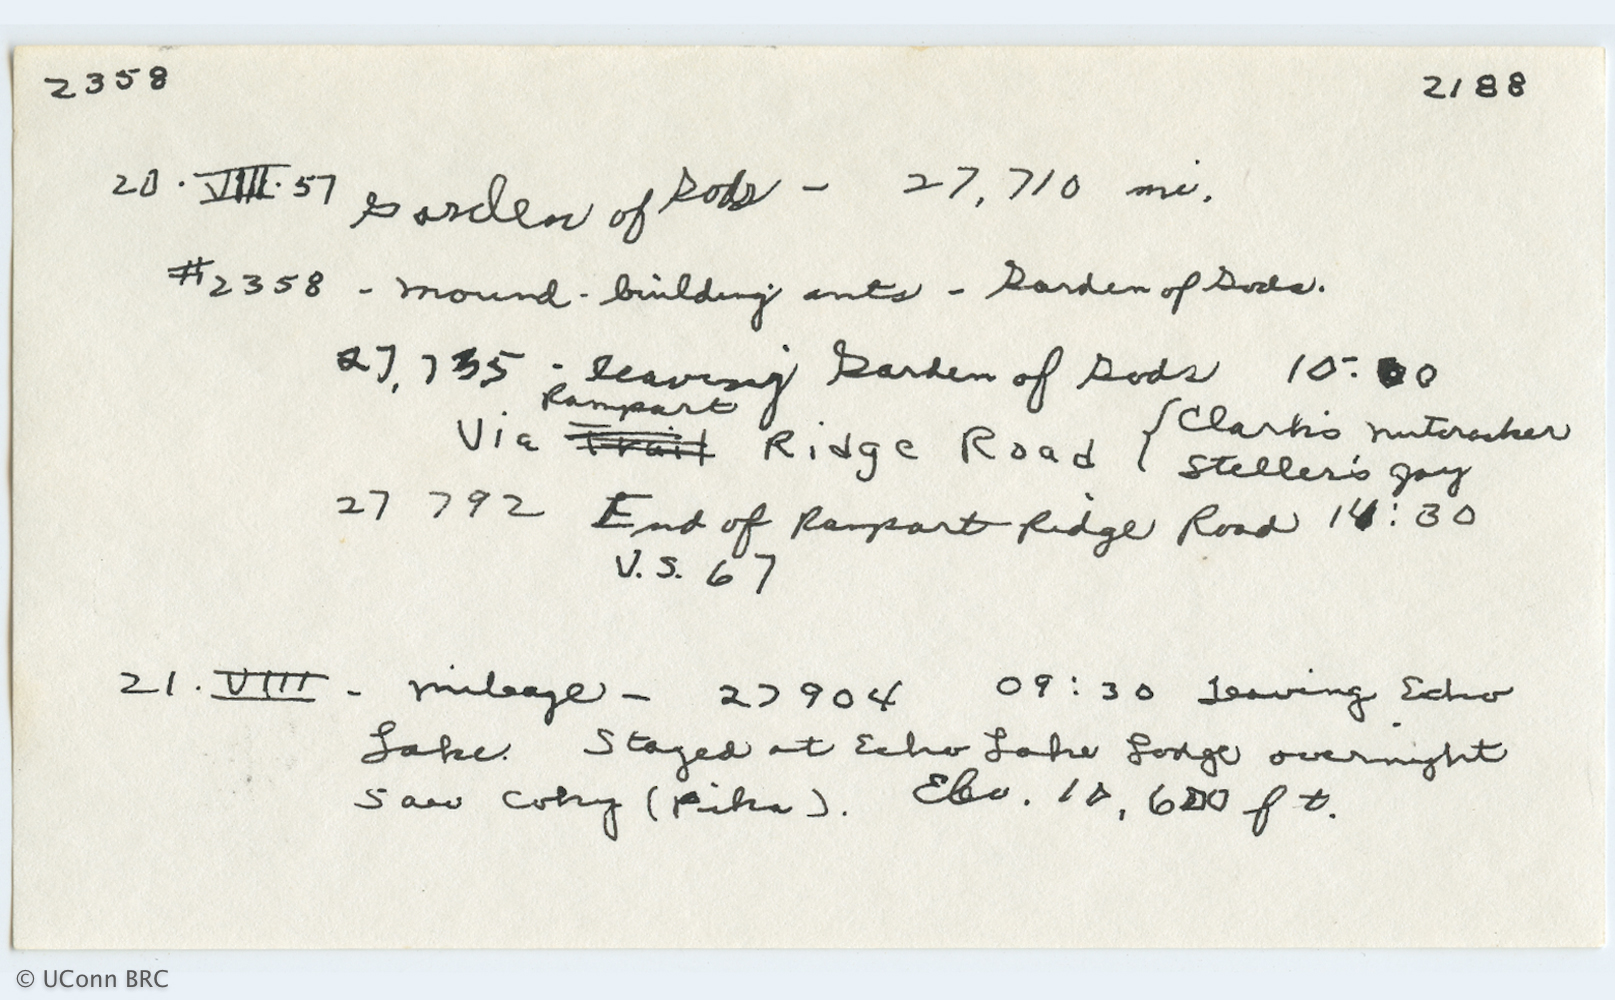 2358 2188
20. VIII. 57 Garden of Gods - 27,710 mi.
#2358 - mound-building ants - Garden of Gods.
27,735 - leaving Garden of Gods 10:00
Rampart
Via Trail Ridge Road { Clark's nutcracker
Steller's jay
27 792 End of Rampart Ridge Road 14:30
U.S. 67
21. VIII - mileage - 27904 09:30 leaving Echo
Lake. Stayed at Echo Lake Lodge overnight
Saw cony (Pika). Elev. 10,600 ft.
© UConn BRC